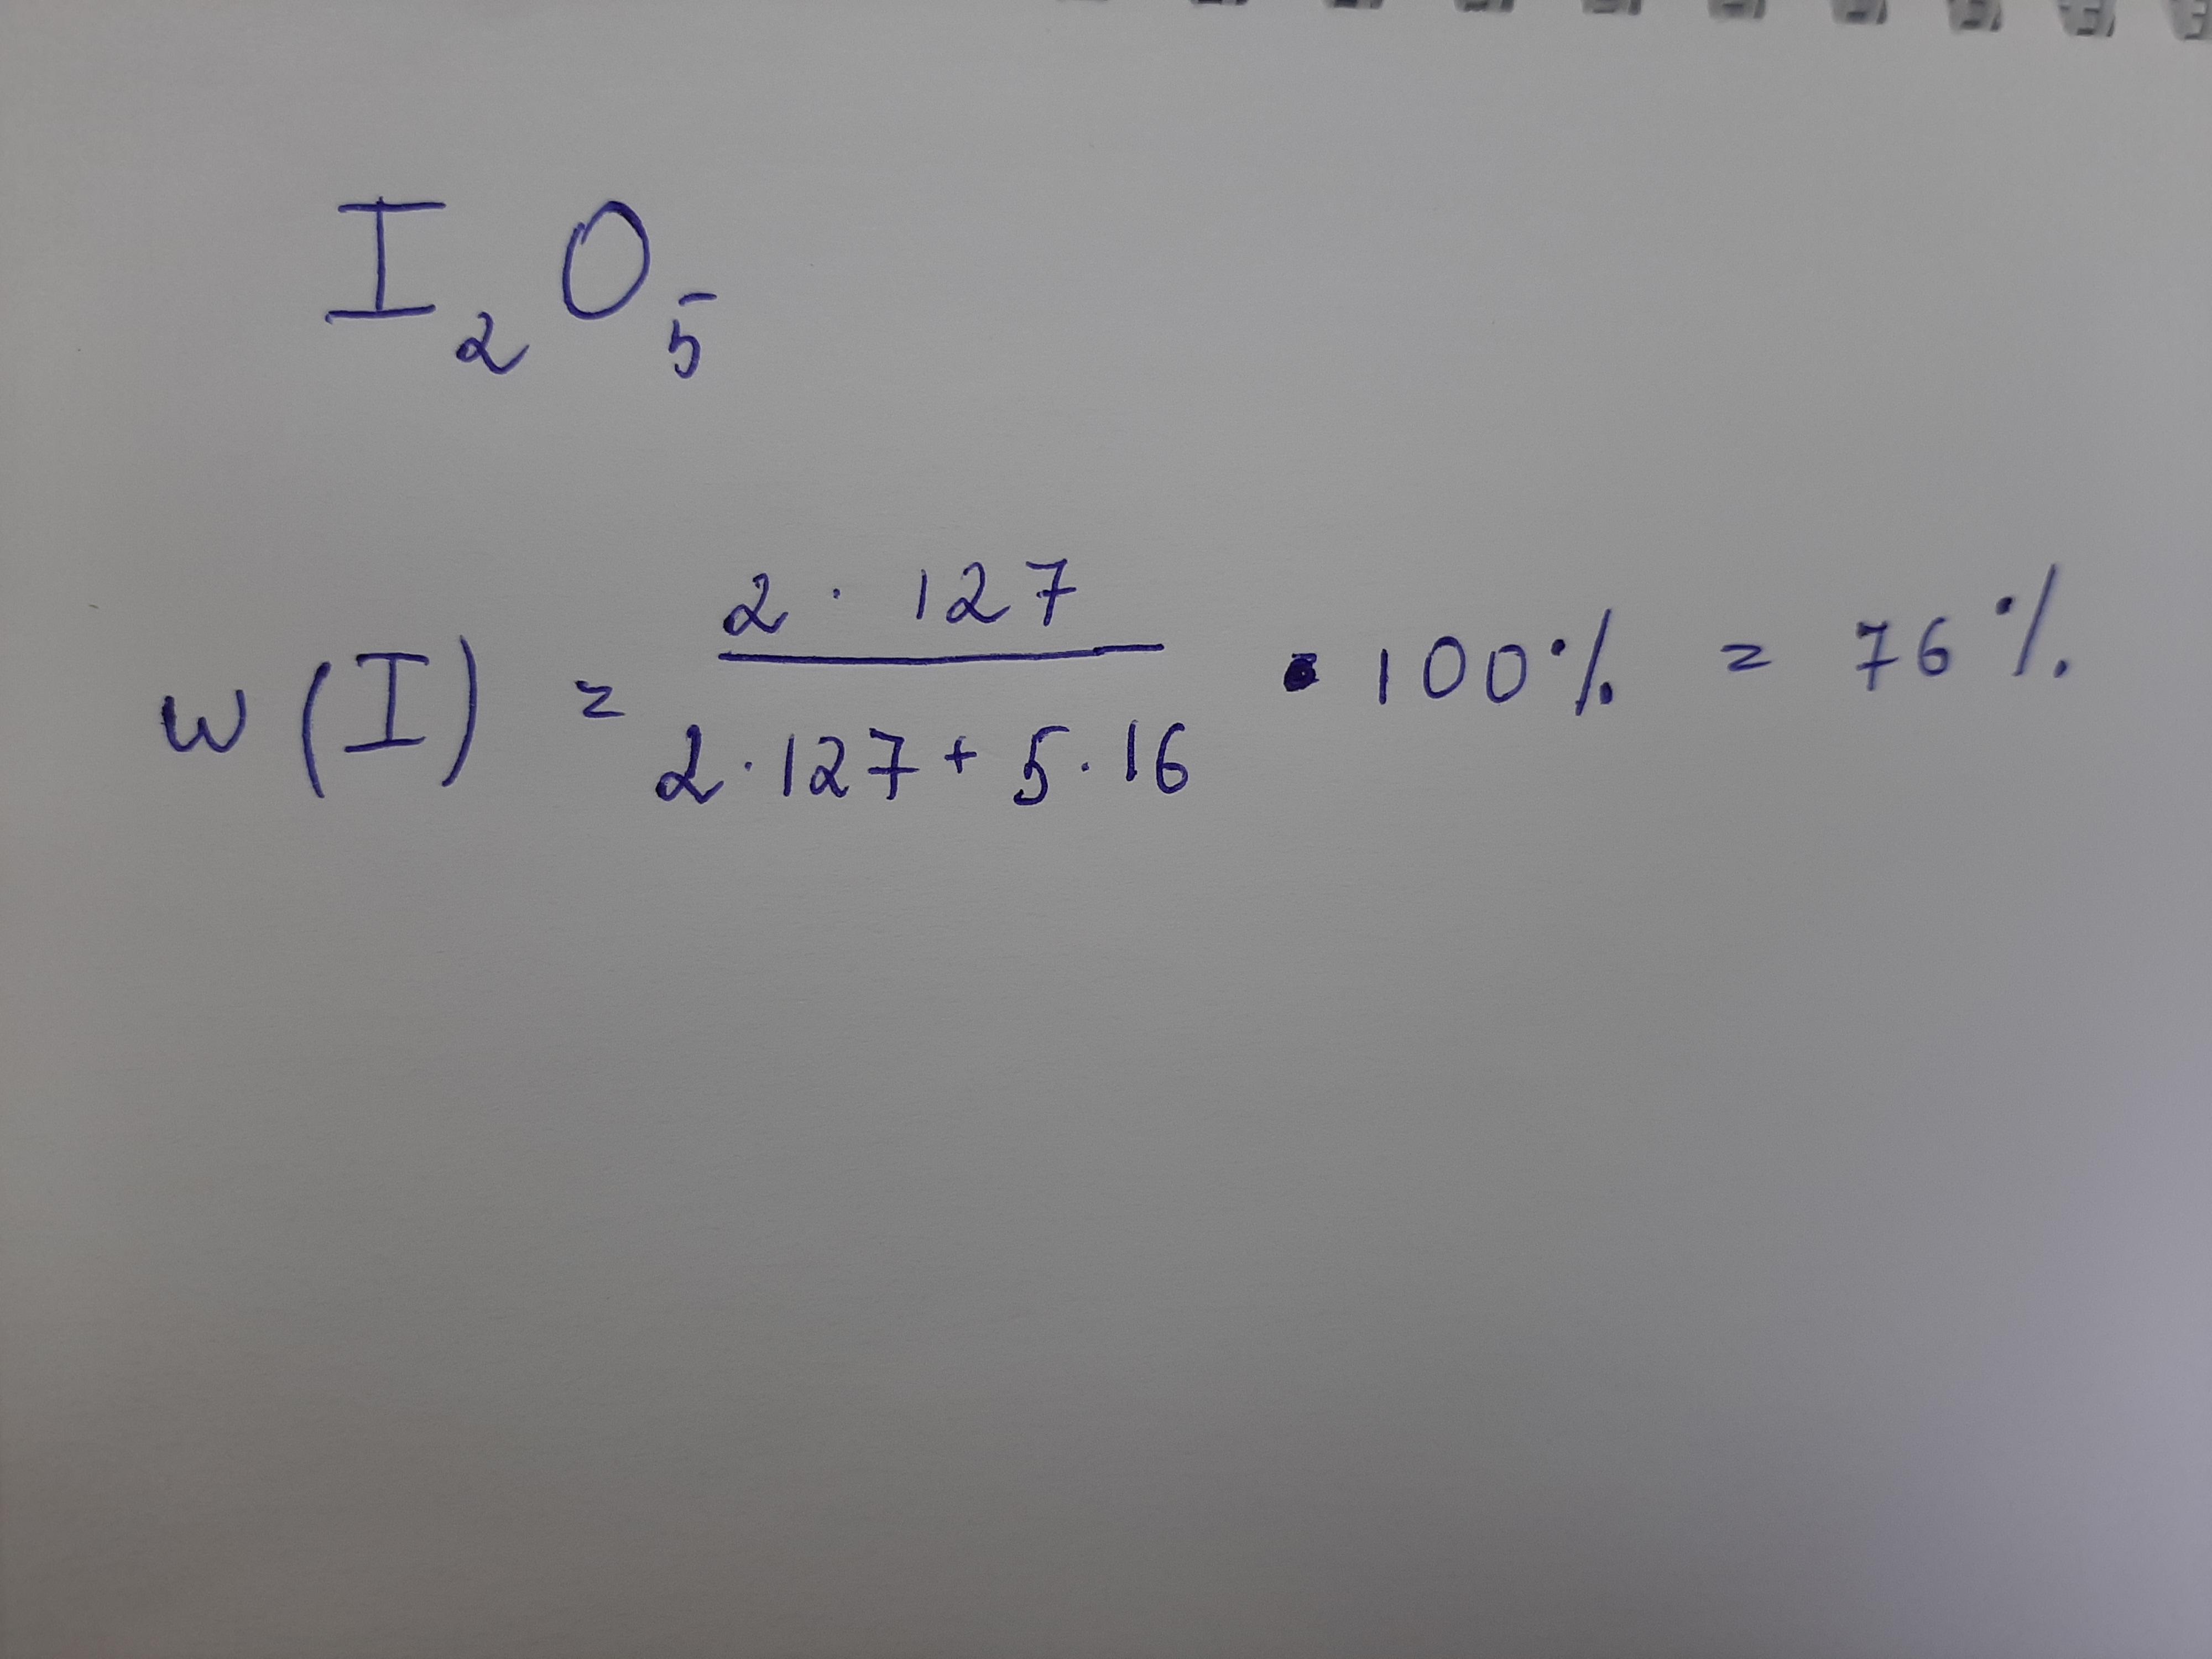 I₂O₅
w (I) = (2 · 127) / (2 · 127 + 5 · 16) · 100% = 76%